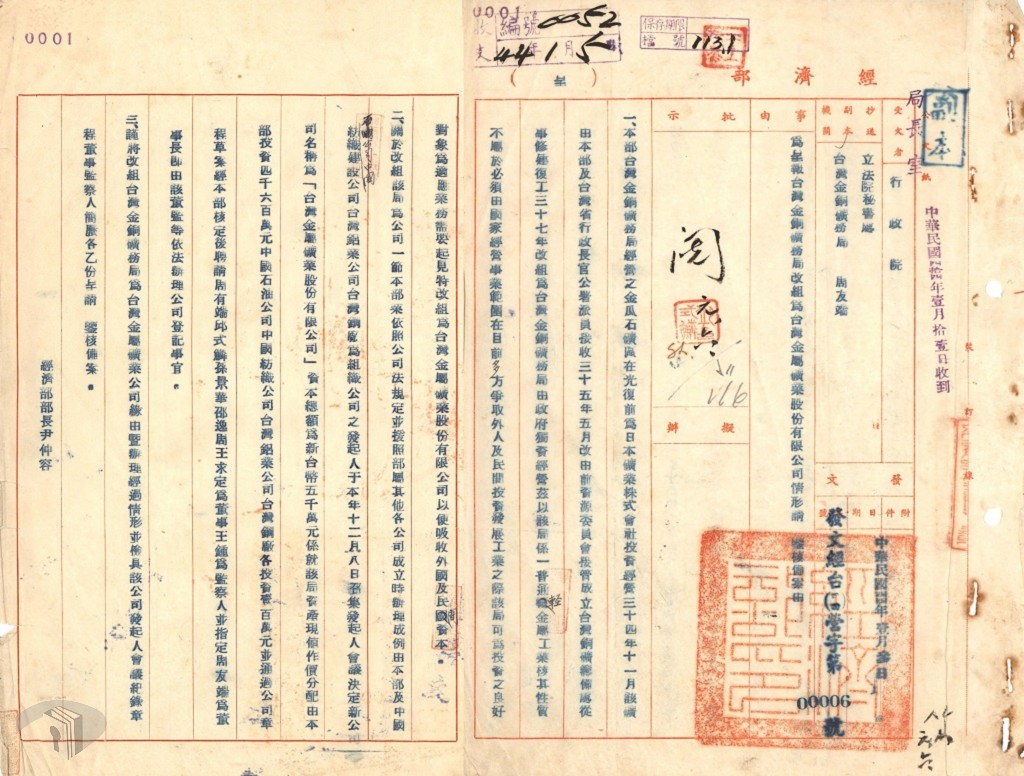 0001
0001
編號 0052
44年1月5
保存期限
檔號 1131
經濟部
(   )
副本
局長室
中華民國四拾四年壹月拾壹日收到
受文者
行政院
抄送副本機關
立法院秘書處
台灣金銅礦務局 周友端
事由
為呈報台灣金銅礦務局改組為台灣金屬礦業股份有限公司情形請鑒核備案由
批示
閱
擬辦
發文
附件
日期
號
中華民國四四年壹月參日
發文經台(四四)營字第00006號
一、本部台灣金銅礦務局經營之金瓜石礦區在光復前為日本礦業株式會社投資經營三十四年十一月該礦
由本部及台灣省行政長官公署派員接收三十五年五月改由前資源委員會接管成立台灣銅礦籌備處從
事修建復工三十七年改組為台灣金銅礦務局由政府獨資經營茲以該局係一普通輕金屬工業核其性質
不屬於必須由國家經營事業範圍在目前多方爭取外人及民間投資發展工業之際該局可為投資之良好
對象為適應業務需要起見特改組為台灣金屬礦業股份有限公司以便吸收外國及民間資本。
二、關於改組該局為公司一節本部業依照公司法規定並援照部屬其他各公司成立時辦理成例由本部及中國
紡織建設公司台灣鋁業公司台灣銅廠為組織公司之發起人于本年十二月八日召集發起人會議決定新公
司名稱為「台灣金屬礦業股份有限公司」資本總額為新台幣五千萬元係就該局資產現值作價分配由本
部投資四千六百萬元中國石油公司中國紡織公司台灣鋁業公司台灣銅廠各投資壹百萬元並通過公司章
程草案經本部核定後聘請周友端邱式麟孫景華邵逸周王求定為董事王鏞為監察人並指定周友端為董
事長即由該董監等依法辦理公司登記事宜。
三、謹將改組台灣金銅礦務局為台灣金屬礦業公司緣由暨辦理經過情形並檢具該公司發起人會議紀錄章
程董事監察人簡歷各乙份呈請 鑒核備案。
經濟部部長尹仲容